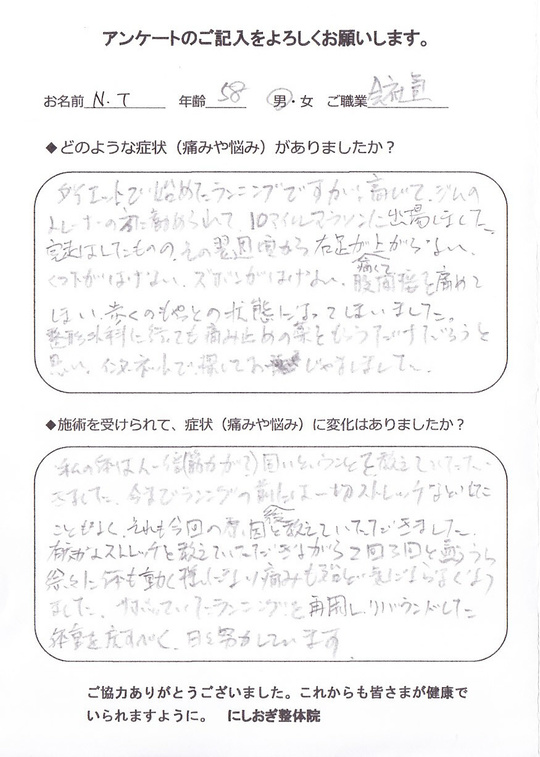 アンケートのご記入をよろしくお願いします。
お名前 N.T 年齢 58 男・女 ご職業 会社員
◆どのような症状（痛みや悩み）がありましたか？
ダイエットで始めたランニングですが、高じて、ジムの
トレーナーの方に勧められて、10マイルマラソンに出場しました。
完走はしたものの、その翌週頃から右足が上がらない、
くつ下がはけない、ズボンがはけない、痛くて股関節を痛めて
しまい、歩くのもやっとの状態になってしまいました。
整形外科に行っても痛み止めの薬をもらうだけだろうと
思い、インターネットで探してお じゃましました。
◆施術を受けられて、症状（痛みや悩み）に変化はありましたか？
私の体は人一倍(筋力が？)固いということを教えていただ
きました。今までランニングの前には一切ストレッチなどした
こともなく、それも今回の原因と教えていただきました。
有効なストレッチを教えていただきながら2回3回と通ううち
徐々に体も動く様になり痛みも殆ど気にならなくなり
ました。サボっていたランニングを再開し、リバウンドした
体重を戻すべく、日々努力しています
ご協力ありがとうございました。これからも皆さまが健康で
いられますように。 にしおぎ整体院